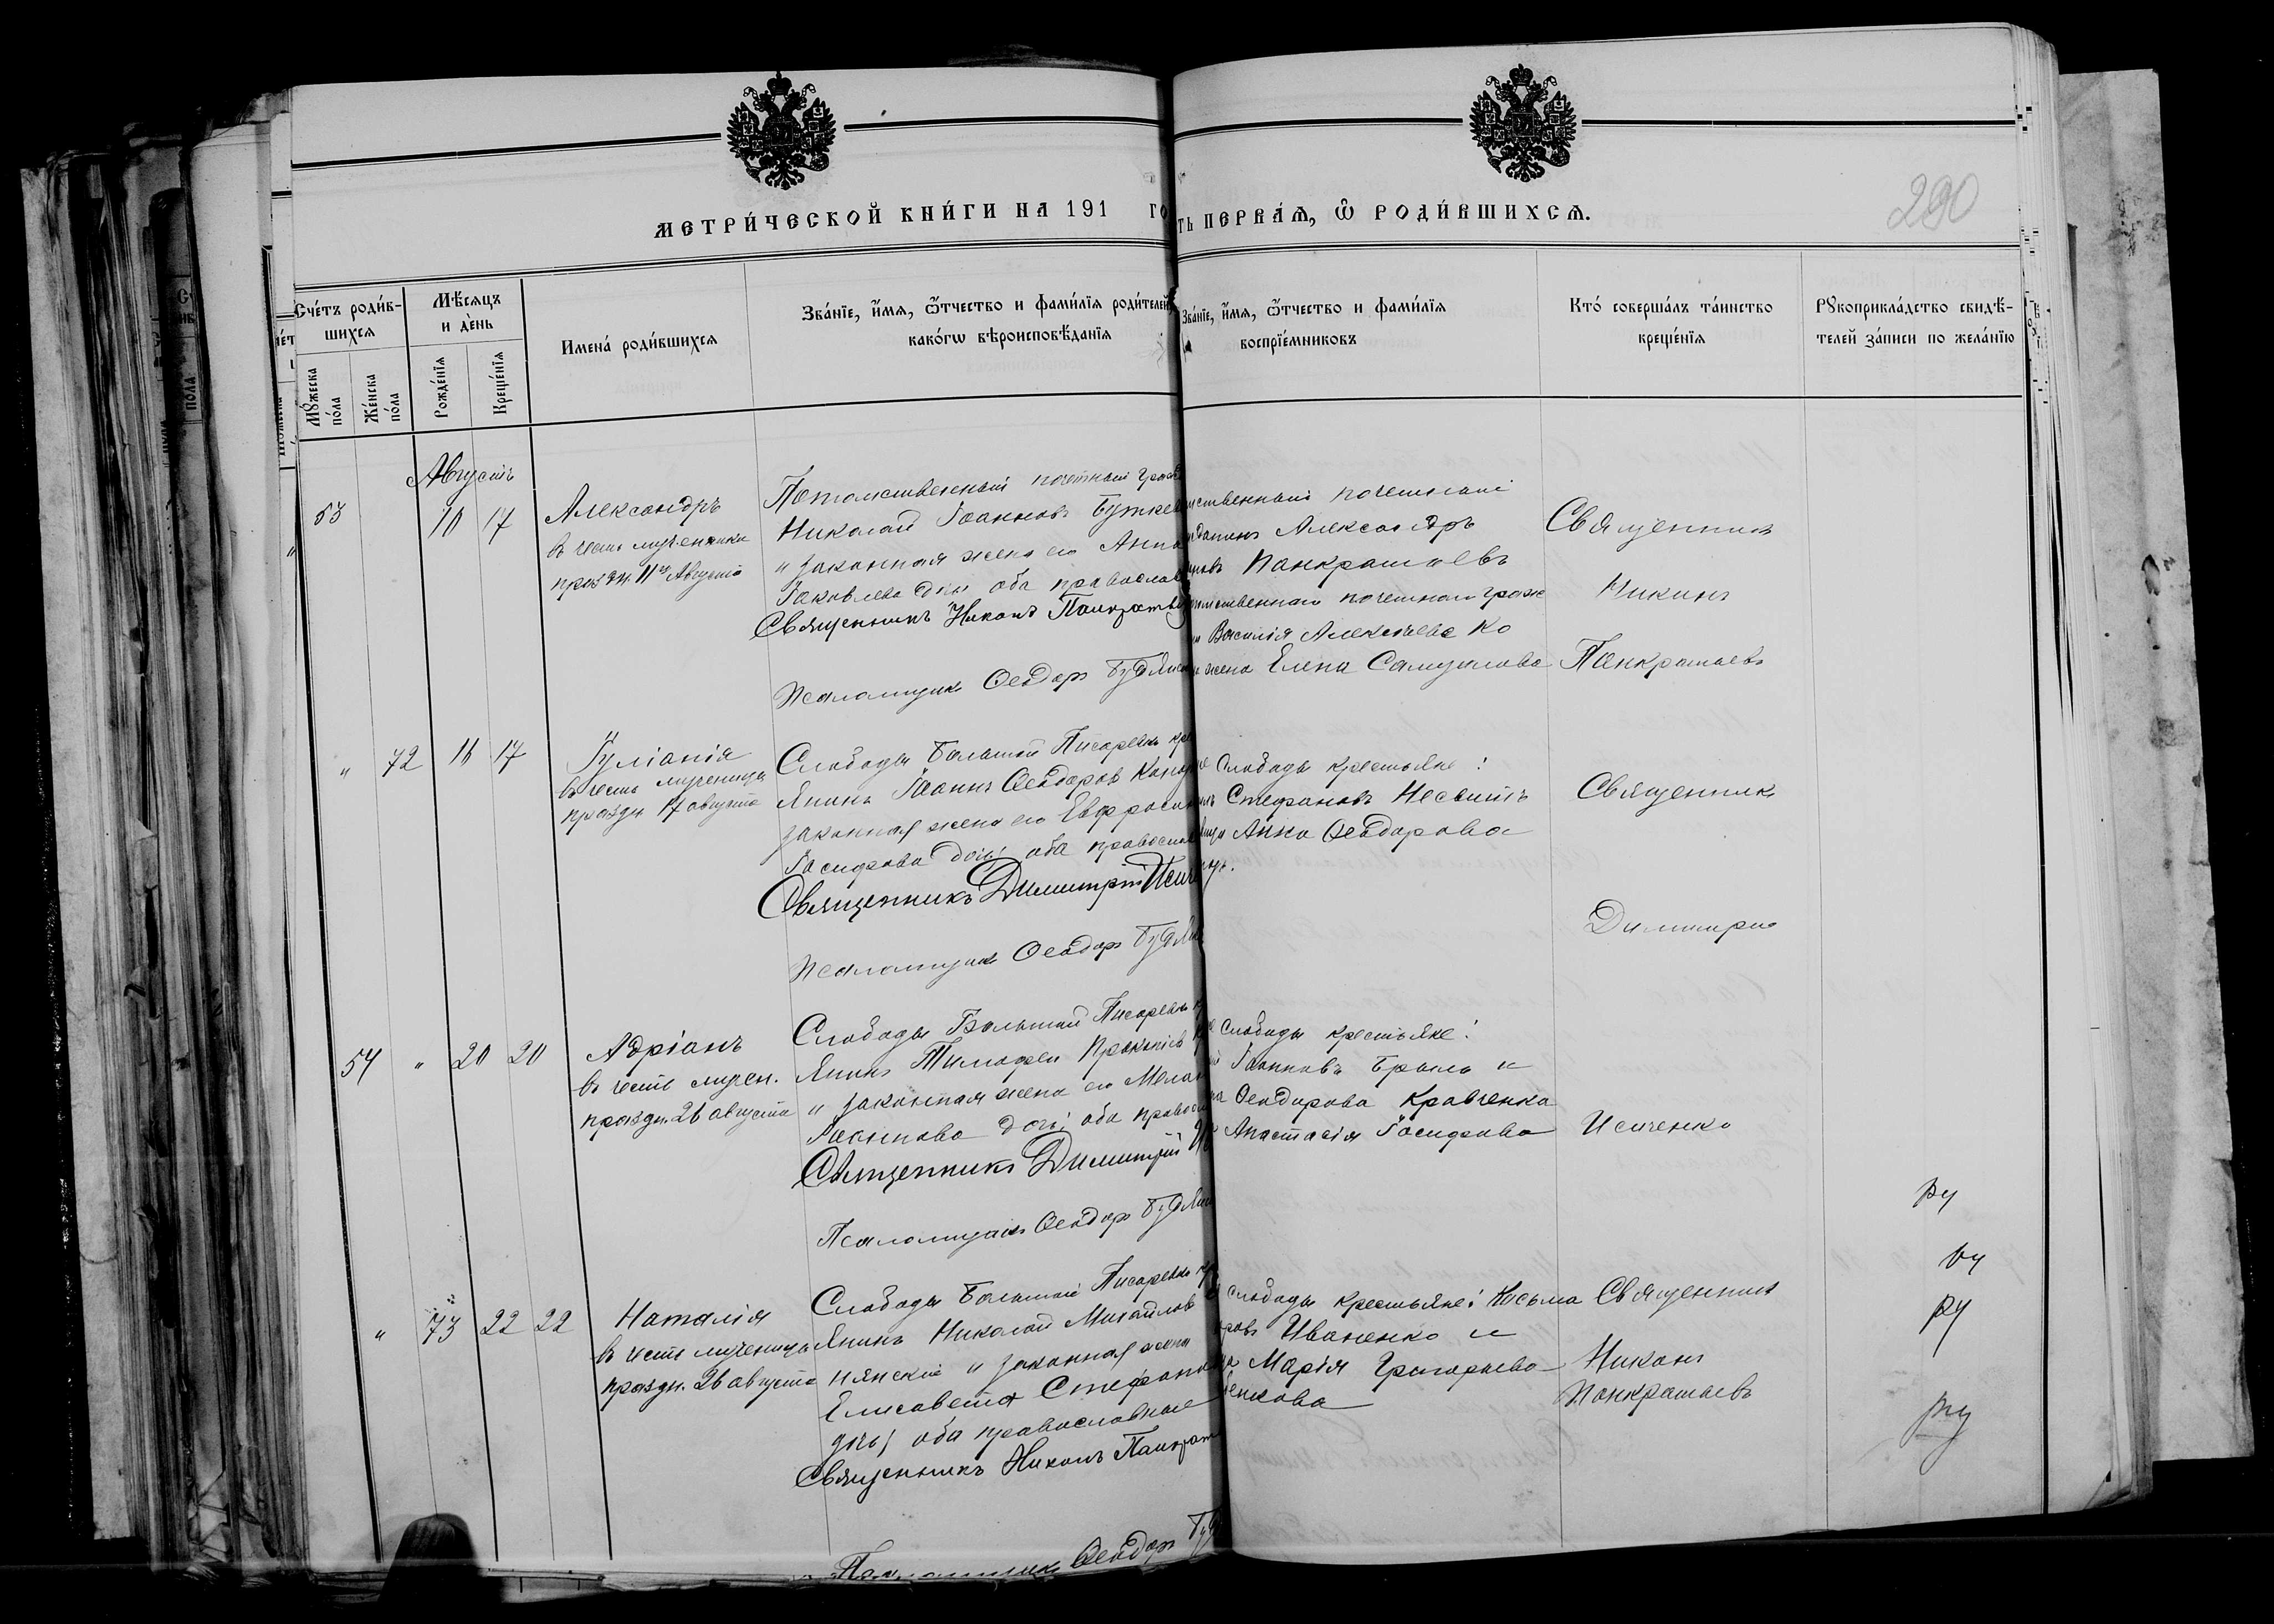 290
МЕТРИ́ЧЕСКОЙ КНИ́ГИ НА 191 ГО
ТЬ ПЕРВАѦ, Ѿ РОДИ́ВШИХСѦ.
Сче́тъ роди́в-
шихсѧ
Мѣ́сѧцъ
и де́нь
Имена́ роди́вшихсѧ
Зва́нїе, и́мѧ, ѻ́тчество и фами́лїѧ роди́телей
како́гѡ вѣроисповѣ́данїѧ
Зва́нїе, и́мѧ, ѻ́тчество и фами́лїѧ
воспрїе́мниковъ
Кто́ соверша́лъ та́инство
креще́нїѧ
Рꙋкоприкла́дство свидѣ́-
телей за́писи по жела́нїю
Мꙋ́жеска
по́ла
Же́нска
по́ла
Рожде́нїѧ
Креще́нїѧ
Августъ
53
10 17
Александръ
въ честь мученика
празд. 11го Августа
Потомственный почетный граж
Николай Іоанновъ
и законная жена его Анна
Іаковлева дочь оба православ
Священникъ Никонъ Панкратьев
Псаломщикъ Ѳеодоръ
ственный почетный
данинъ Александръ
новъ Панкратьевъ
томственнаго почетнаго граж
Василія Алексѣева Ко
жена Елена Самуилова
Священникъ
Никонъ
Панкратьевъ
" 72 16 17
Іуліанія
въ честь мученицы
праздн. 17 августа
Слободы Большой Писаревки кре
янинъ Іоаннъ Ѳеодоровъ
законная жена его Евфросин
Іосифова дочь, оба православ
Священникъ Димитрій Исич
Псаломщикъ Ѳеодоръ
слободы крестьяне:
Стефановъ Несвитъ
Анна Ѳеодорова
Священникъ
Димитрій
Исиченко
54 " 20 20
Адріанъ
въ честь мучен.
праздн. 26 августа
Слободы Большой Писаревки
янинъ Тимофей Прокопіев
и законная жена его Мелан
Іоаннова дочь, оба правосл
Священникъ Димитрій
Псаломщикъ Ѳеодоръ
слободы крестьяне:
Іоанновъ и
Ѳеодорова Кравченко
Анастасія Іосифова
" 73 22 22
Наталія
въ честь мученицы
праздн. 26 августа
Слободы Большой Писаревки кр
янинъ Николай Михайлов
нянскій и законная жена
Елисавета Стефано
дочь, оба православные
Священникъ Никонъ Панкрат
Псаломщикъ Ѳеодоръ
слободы крестьяне: Косьма
ровъ Иваненко и
Марія Григорьева
енкова
Священникъ
Никонъ
Панкратьевъ